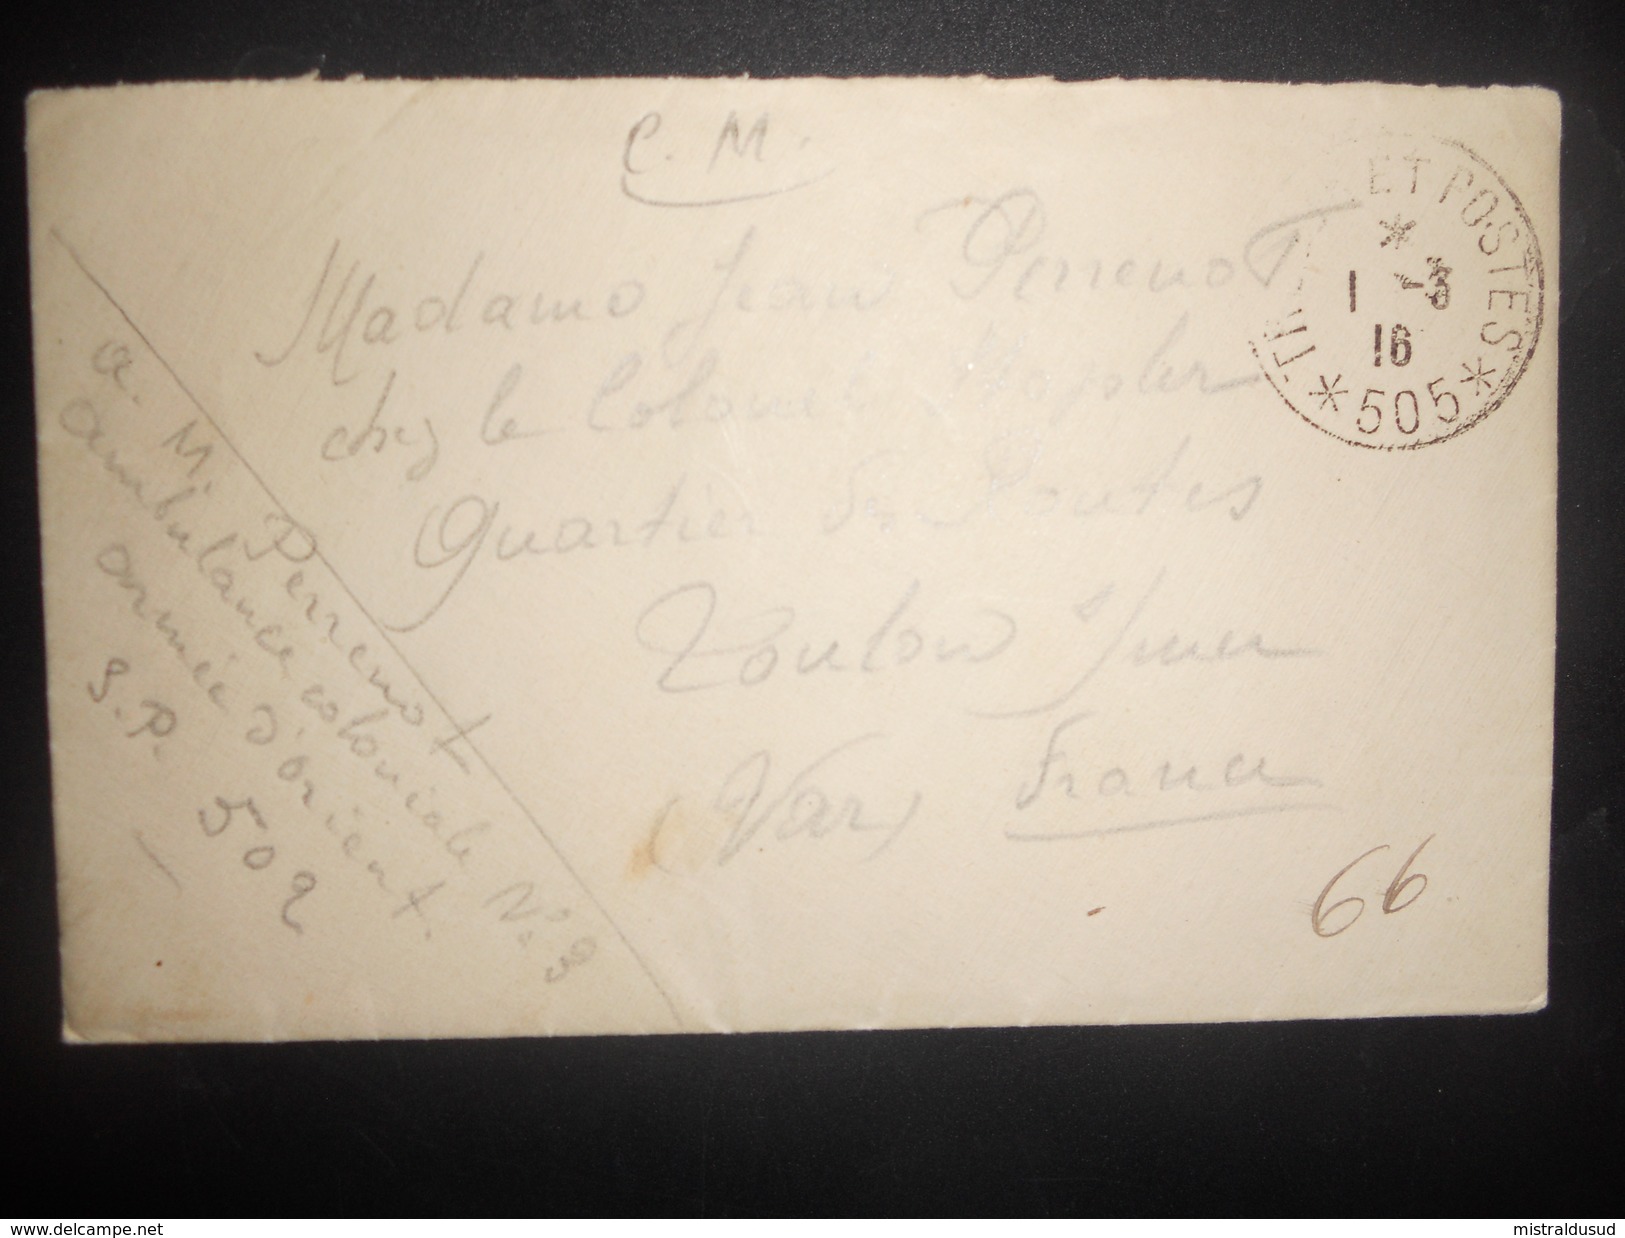 C. M.
TRÉSOR ET POSTES
1 -3
16
* 505 *
Madame Jean Perrenot
chez le Colonel
Quartier des Routes
Toulon s/mer
(Var) France
66
a. M. Perrenot
ambulance coloniale N° 3
armée d'orient.
S. P. 502
www.delcampe.net
mistraldusud